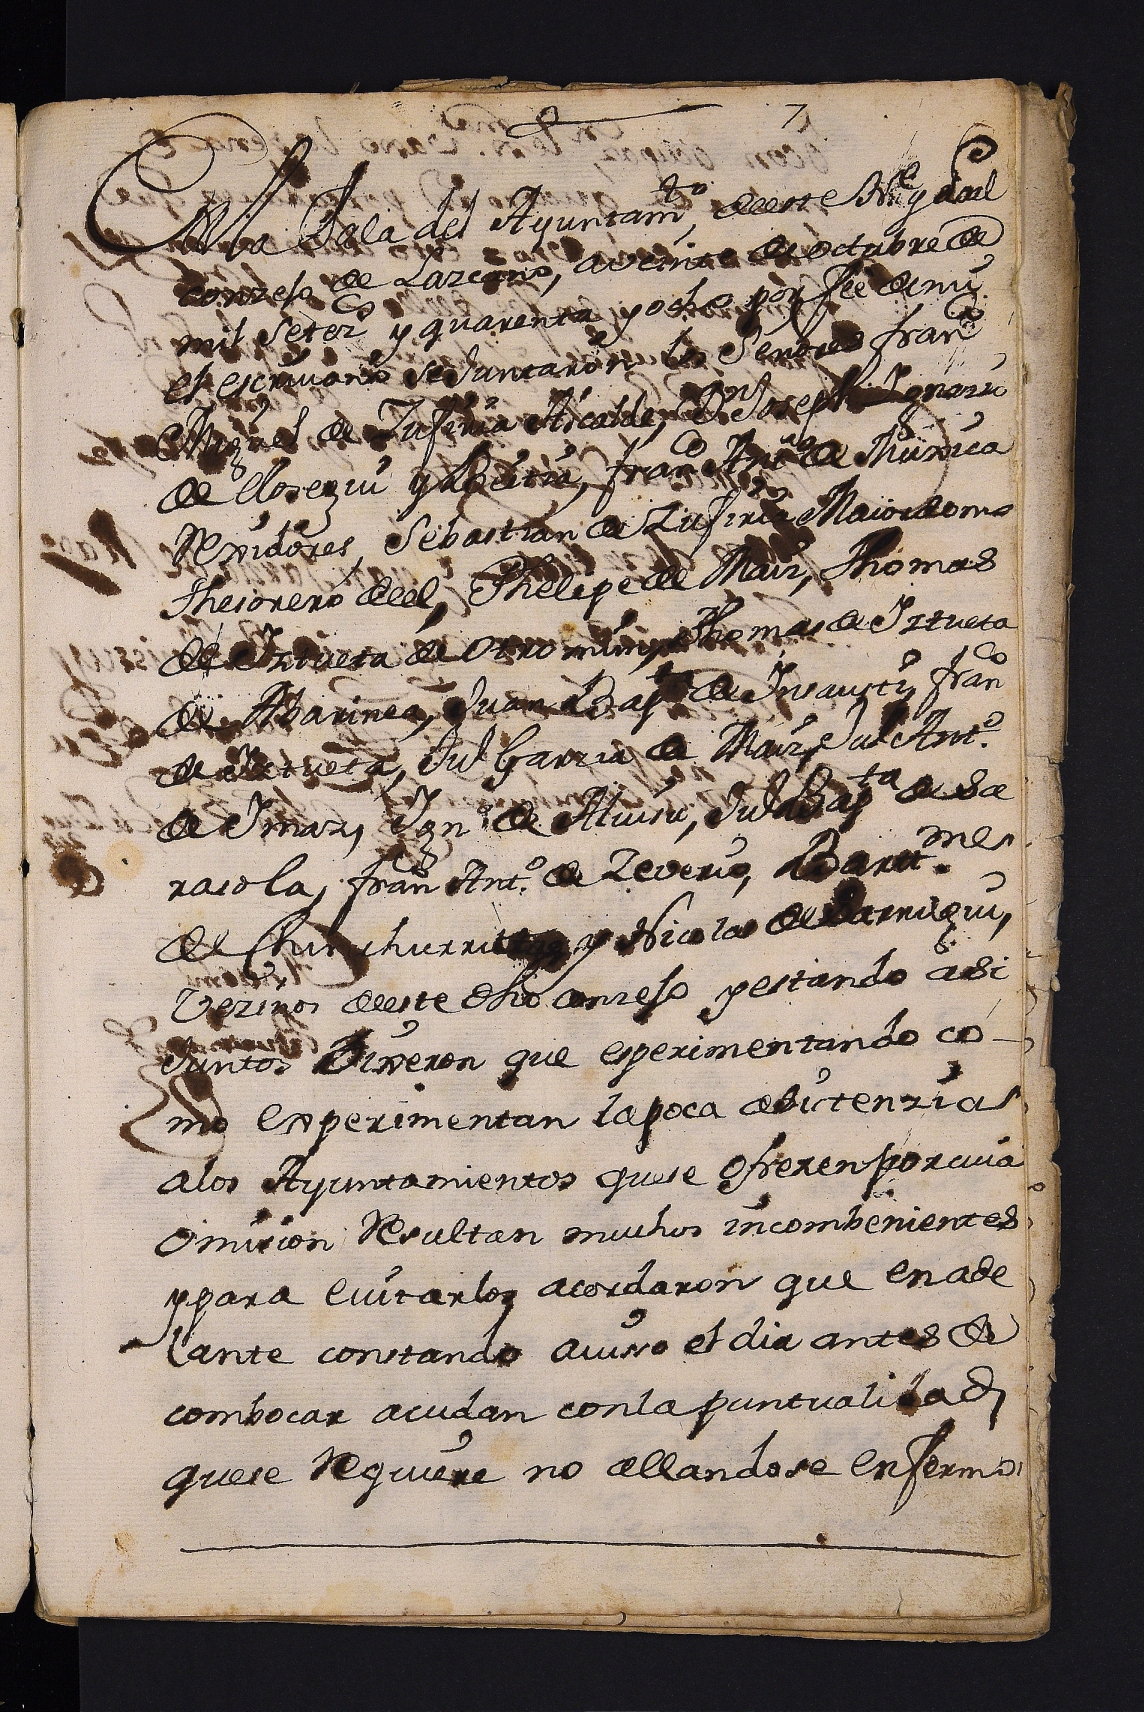 En la Sala del Ayuntamto, de este Ne y Leal
conzejo de Lazcano, a veinte de octubre de
mil setezs y quarenta y ocho por fee de mi
el escriuano se Juntaron los Señores franco
Miguel de Zufiria Alcalde, Dn Joseph Ignazio
de Elosegui y Beitia, franco Anto de Thunica
Rexidores, Sebastian de Zufiria Maiordomo
thesorero de el, Phelipe de Maiz, Thomas
de Iztueta de otro, Thomas de Iztueta
de Abarinea, Juan Bapta de Insausti, franco
de Iztueta, Jul Garzia de Maiz, Jul Anto.
de Imaz, Igno de Aluisu, Jul Bapta de Sa
rasola, franco Anto. de Zeverio, Bartme
de Chinchurreta y Nicolas de Barrdegui,
vezinos de este dho conzejo y estando asi
Juntos Dixeron que esperimentando co-
mo experimentan la poca asistenzia
a los Ayuntamientos que se ofrezen por cuia
omision Resultan muchos incombenientes
y para euitarlos acordaron que en ade
lante constando auisso el dia antes de
combocar acudan con la puntualidad
que se Requiere no allandose enfermos